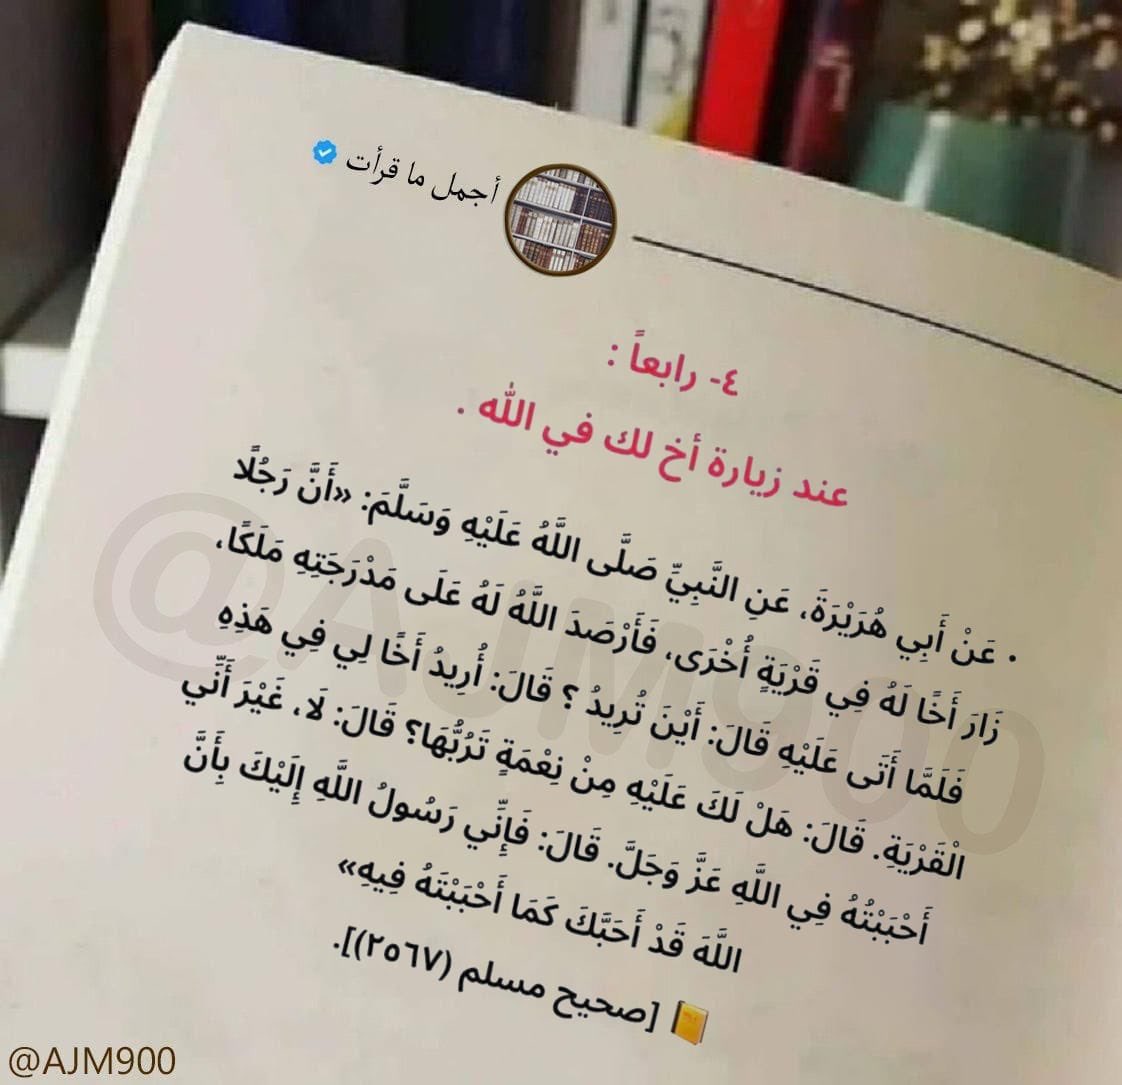 أجمل ما قرأت
٤- رابعاً :
عند زيارة أخ لك في الله .
• عَنْ أَبِي هُرَيْرَةَ، عَنِ النَّبِيِّ صَلَّى اللَّهُ عَلَيْهِ وَسَلَّمَ: «أَنَّ رَجُلًا
زَارَ أَخًا لَهُ فِي قَرْيَةٍ أُخْرَى، فَأَرْصَدَ اللَّهُ لَهُ عَلَى مَدْرَجَتِهِ مَلَكًا،
فَلَمَّا أَتَى عَلَيْهِ قَالَ: أَيْنَ تُرِيدُ ؟ قَالَ: أُرِيدُ أَخًا لِي فِي هَذِهِ
الْقَرْيَةِ. قَالَ: هَلْ لَكَ عَلَيْهِ مِنْ نِعْمَةٍ تَرُبُّهَا؟ قَالَ: لَا، غَيْرَ أَنِّي
أَحْبَبْتُهُ فِي اللَّهِ عَزَّ وَجَلَّ. قَالَ: فَإِنِّي رَسُولُ اللَّهِ إِلَيْكَ بِأَنَّ
اللَّهَ قَدْ أَحَبَّكَ كَمَا أَحْبَبْتَهُ فِيهِ»
📒 [صحيح مسلم (٢٥٦٧)].
@AJM900
@AJM900